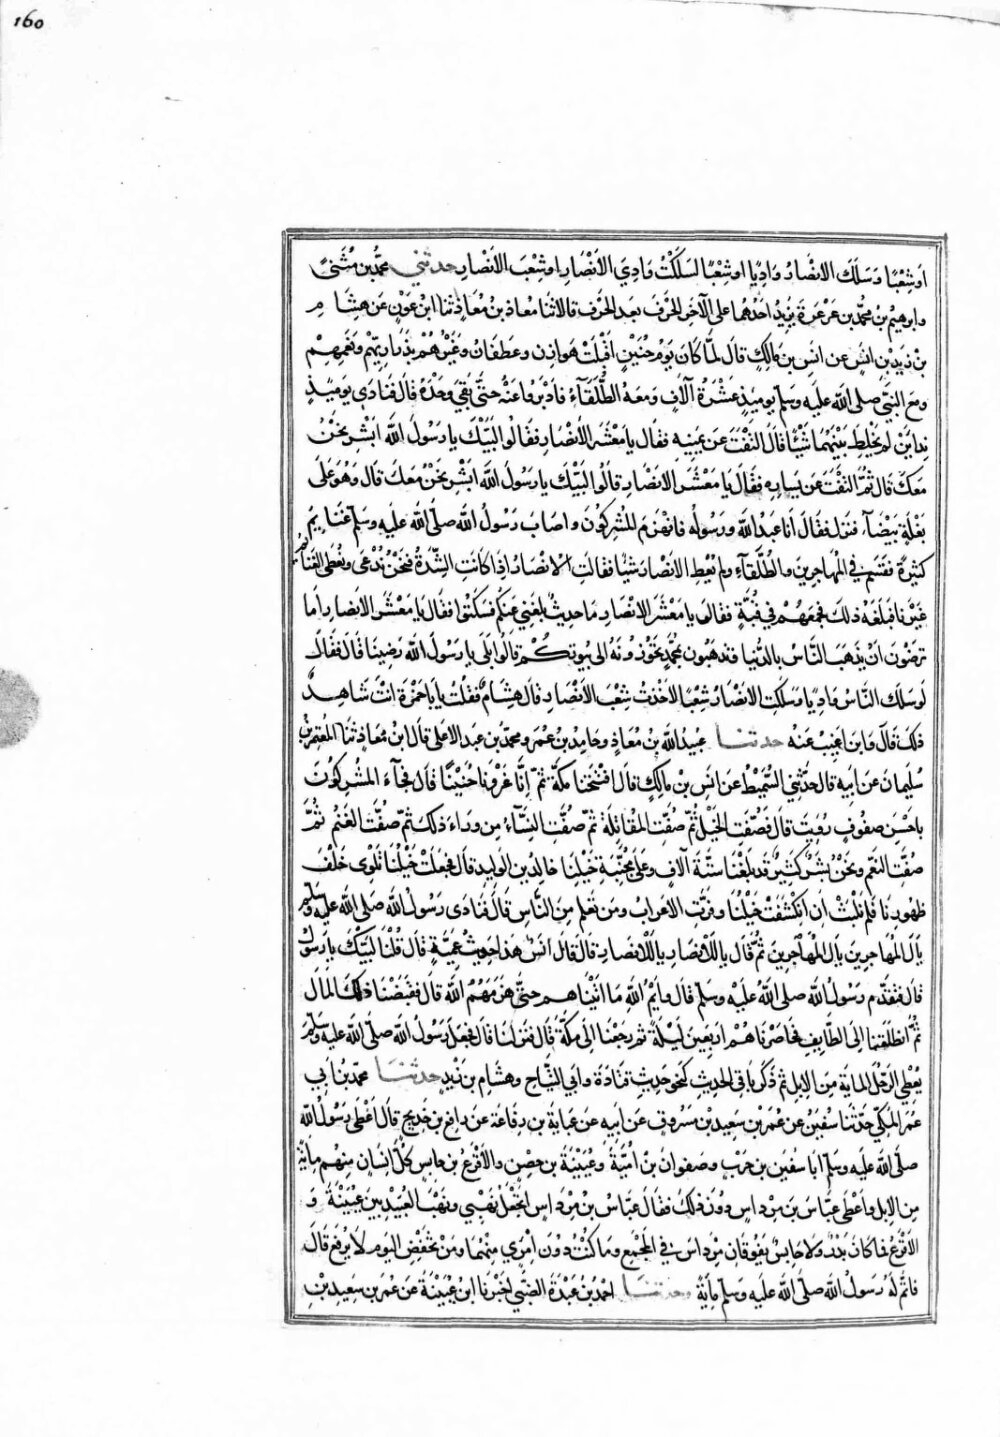 160
اَوشِعْبًا وَسَلَكَ الانْصَارُ وَادِيًا اوشِعْبًا لسَلَكْتُ وَادِيَ الانْصَارِ اوشِعْبَ الانْصَارِ حدثني محمَّد بن مُثَنىً
وابرهيم بن محمَّد بن عَرْعَرَةَ يَزِيدُ احَدُهُما على الآخَرِ الحَرْفَ بعدَ الحَرْفِ قالا ثنا مُعاذ بنُ مُعَاذٍ ثنا ابنُ عَوْنٍ عَن هِشَامِ
بْنِ زَيدِ بنِ انَسٍ عن انَسِ بنِ مَالِكٍ قالَ لمَّا كانَ يَومُ حُنَيْنٍ اَقْبَلَتْ هَوازِن وغَطَفَانُ وغَيْرُهُمْ بذَرَارِيّهِمْ ونَعَمِهِمْ
ومَعَ النبّيِ صلى الله عليه وسَلم يوميَذٍ عشَرَةُ آلَافٍ ومَعَهُ الطُّلَقَآءُ فادْبَرُوا عَنْهُ حتىَّ بَقِيَ وحْدَهُ قَالَ فنَادَى يوميذٍ
نِدايَنِ لم يخلِط بَيْنَهُما شَيْئًا قَالَ التَفَتَ عَن يمينِهِ فقال يا مَعْشَرَ الانْصَارِ فقَالُوا لبَيّكَ يا رَسُولَ اللهِ اَبْشِرْ نَحْنُ
مَعَكَ قالَ ثُمَّ التَفَتَ عَن يَسارِهِ فَقَالَ يَا مَعْشَرَ الانصَارِ قَالُوا لبَيّكَ يا رَسُولَ اللهِ ابْشِرْ نحنُ مَعَكَ قَالَ وَهُوَ عَلَى
بَغْلَةٍ بَيْضَآءَ فنَزَلَ فَقَالَ اَنا عَبدُ اللهِ ورَسُولُه فانهَزَمَ المُشرِكُونَ واصَابَ رَسُولُ اللهِ صلى الله عليه وسَلم غنَايِمَ
كثِيرَةً فقَسَمَ في المُهاجِرِينَ والطُلَقآءِ ولم يُعْطِ الانْصَارَ شيًا فقالَتِ الانْصَارُ اذَا كانَتِ الشِّدّةُ فنَحْنُ نُدْعَى ويُعْطَى الغنَايمَ
غَيْرُنَا فبَلَغَهُ ذلكَ فجمَعَهُمْ في قُبَّةٍ فقالَ يا مَعْشَرَ الانْصَارِ مَا حديثٌ بلَغَنِي عَنكُمْ فسَكَتُوا فقالَ يا مَعْشَرَ الانصارِ اَما
ترضَوْنَ اَنْ يَذهَبَ النَّاسُ بالدُّنيا وتذهَبُون بمُحَمَّدٍ تحُوزُونَهُ الى بيُوتكُمْ قَالُوا بَلَى يا رَسُولَ اللهِ رَضِينَا قَالَ فقَالَ
لَو سَلَكَ النَّاسُ وادِيًا وسَلكَتِ الانصَارُ شِعْبًا لاخَذتُ شِعْبَ الانْصَارِ قالَ هِشَامٌ فقُلْتُ يا بَا حَمْزَةَ انْتَ شَاهِدٌ
ذلكَ قَالَ واينَ اغِيبُ عَنهُ حدثنا عُبيدُ اللهِ بن مُعَاذٍ وحَامِد بن عُمَرَ ومحمَّد بن عَبدِ الاعلى قالَ ابنُ مُعَاذٍ ثنَا المُعتمِرُ بن
سُلَيمانَ عَن اَبِيهِ قال حَدّثَني السُّمَيطُ عَن انَسِ بْنِ مالِكٍ قالَ افتتحنا مكّةَ ثُمّ اِنَّا غَزَونَا حُنَيْنًا قالَ فجَآءَ المُشرِكُونَ
باحْسَنِ صفُوفٍ رُوِيَتْ قالَ فصُفَّتِ الخَيْلُ ثُمّ صُفَّتِ المُقَاتِلَةُ ثمّ صُفّتِ النِسَآءُ مِن وراءِ ذلكَ ثمّ صفّتِ الغَنَمُ ثُمَّ
صُفَّتِ النَعَمُ ونَحْنُ بشَرٌ كَثيرٌ قد بلَغْنا ستّةَ آلافٍ وعَلى مُجَنِّبَةِ خَيْلِنا خالِدُ بن الوليدِ قالَ فجعَلَتْ خَيْلُنا تَلْوِى خَلْفَ
ظهُورِنَا فلم نَلْبَثْ اَنِ انكَشَفَتْ خَيْلُنَا وفَرَّتِ الاعرابُ ومَن نَعْلم مِنَ النَّاسِ قَالَ فَنَادَى رَسُولُ الله صلى الله عليه وسلم
يَالَ المُهَاجرِينَ يالَ المُهَاجرِينَ ثمَّ قَالَ يا للانصَارِ يا للانصَارِ قالَ قالَ انَسٌ هَذا حَدِيثُ عِمِّيَّةٍ قَالَ قُلْنَا لبَيّكَ يا رَسُولَ الله
قالَ فتَقَدّم رَسُولُ اللهِ صلى اللهُ عليْهِ وسَلم قالَ وايْمُ اللهِ مَا اتَيْناهم حتىَّ هَزَمَهُمُ اللهُ قالَ فقَبَضْنَا ذلكَ المَالَ
ثُمَّ انطلَقنا اِلى الطّايِفِ فحاصَرْنَاهُمْ اربَعِينَ لَيْلَةً ثم رجَعْنَا اِلى مكّةَ قالَ فنَزلنَا قالَ فجَعَلَ رَسُولُ اللهِ صلى الله عليه وسلم
يُعْطِي الرَّجُلَ المايةَ مِنَ الاِبِلِ ثمّ ذَكَرَ باقي الحَدِيثِ كنَحْوِ حَدِيثِ قَتَادَةَ وابي التَّيَّاحِ وهِشَامِ بنِ زَيْدٍ حدثنَا محمّد بنُ ابي
عُمَرَ المَكّي حَدّثنَا سفْيَنُ عَن عُمَرَ بْنِ سَعِيدِ بْنِ مَسْرُوقٍ عَن ابيهِ عَن عَبايَةَ بنِ رِفَاعَةَ عَن رَافِعِ بنِ خَدِيجٍ قالَ اَعْطَى رَسُولُ الله
صلى اللهُ عليهِ وسَلم اَبَا سفيَنَ بن حَرْبٍ وصَفوانَ بنَ اُمَيَّةَ وعُيَيْنَةَ بن حِصْنٍ والاَقْرَعَ بن حابِسٍ كُلَّ انسَانٍ مِنهُم ماية
مِنَ الاِبِلِ واَعْطَى عبّاسَ بنَ مِرْداسٍ دُونَ ذلكَ فقالَ عبّاسُ بنُ مِرْدَاسٍ اتجْعَلُ نَهْبِي ونَهْبَ العُبَيْدِ بَينَ عُيَيْنَةَ و
الاَقْرَعِ فما كَانَ بَدْرٌ ولا حَابِسٌ يَفُوقَانِ مِرْدَاسَ في المَجْمَعِ وما كُنْتُ دُونَ امْرِيٍ منْهُما ومَنْ تخفِضِ اليومَ لا يُرفَعِ قالَ
فاتمَّ لَهُ رَسُولُ اللهِ صلى الله عليه وسَلم مِايَةً وحدثنَا احمدُ بنُ عَبْدَةَ الضبّي اخبَرَنَا ابنُ عُيَيْنَةَ عَن عُمَرَ بنِ سَعِيدِ بْنِ